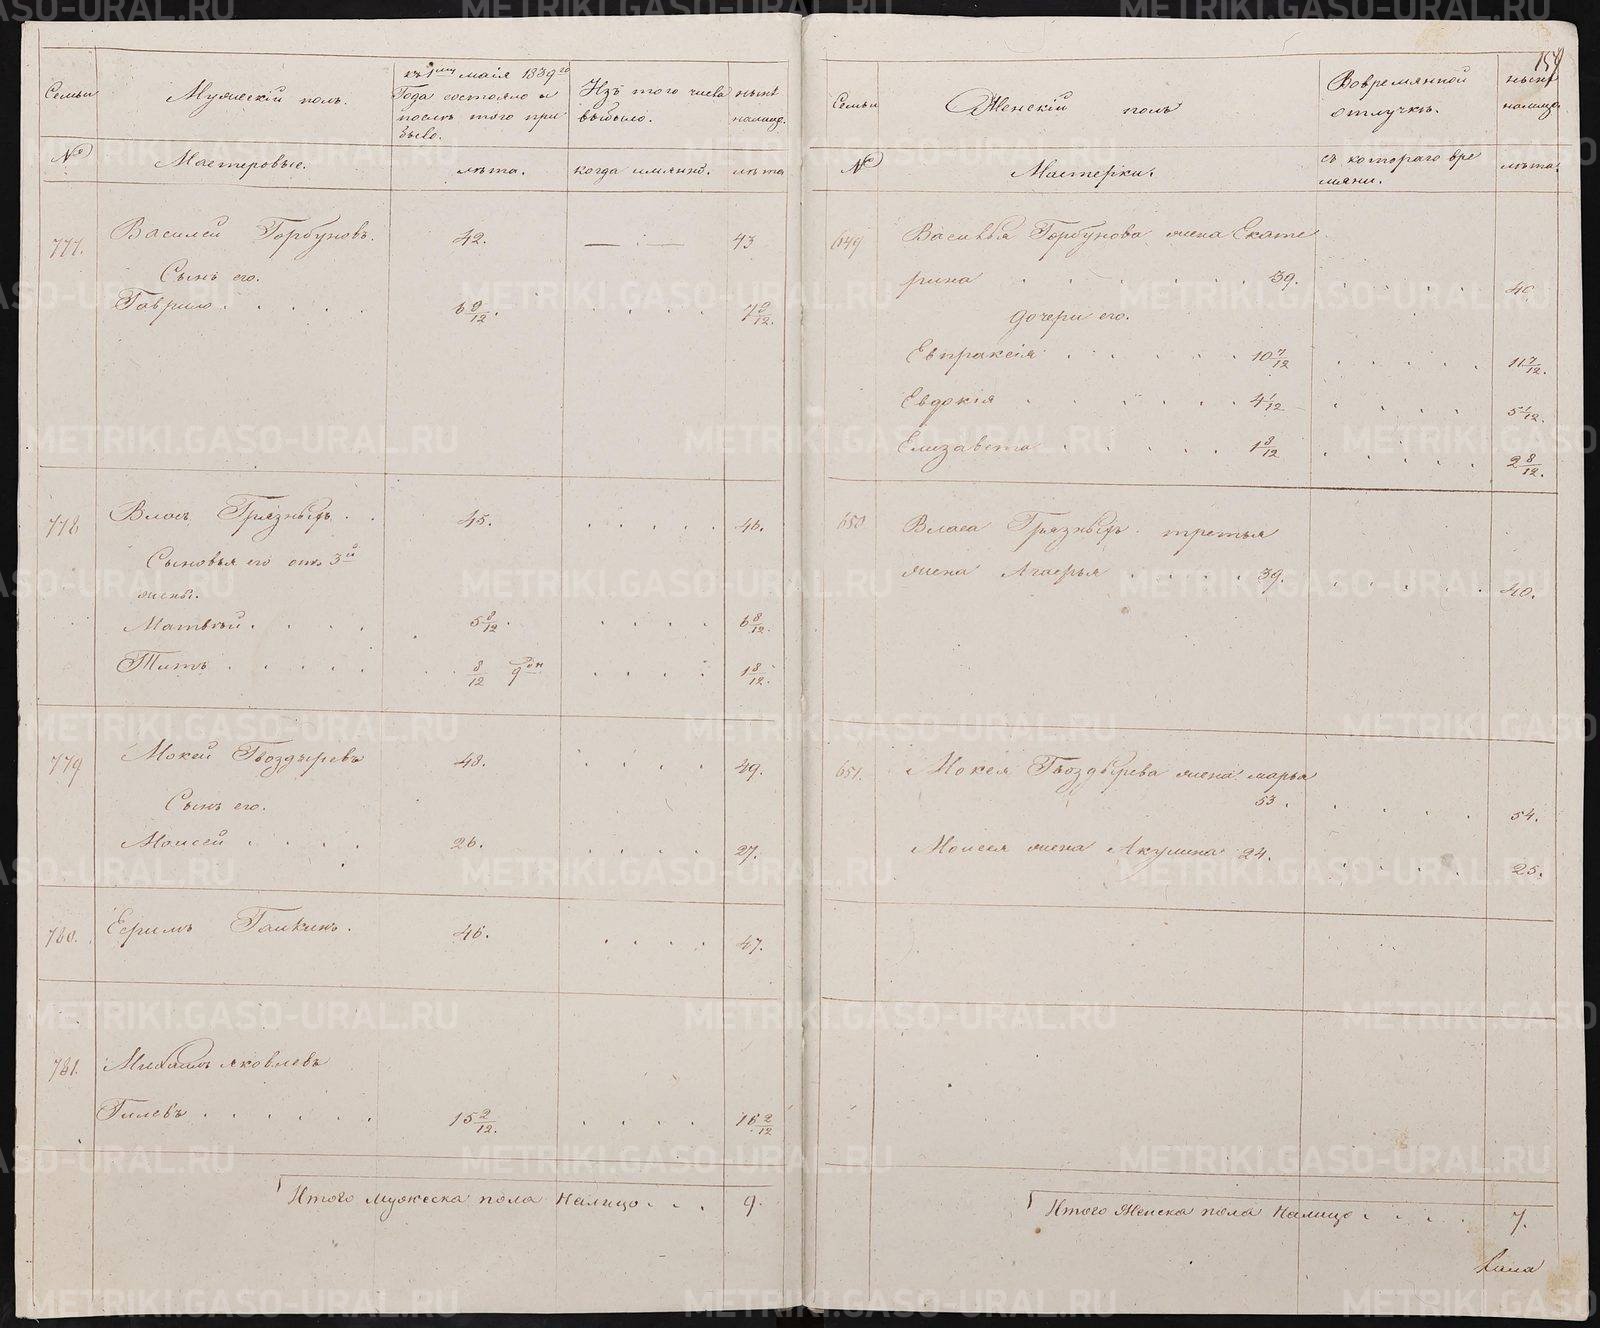 154
Семьи
Мужескiй полъ.
къ 1му маiя 1839го
Года состояло и
после того при
было.
Изъ того числа
выбыло.
ныне
налицо.
№
Мастеровые.
лѣта.
когда имянно.
лѣта
777.
Василей Горбуновъ.
42.
43
Сынъ его.
Гаврило . . . . .
6 9/12.
7 9/12.
778
Власъ Грязныхъ . .
45.
46.
Сыновья его отъ 3й
жены.
Матвѣй . . . .
5 8/12.
6 8/12.
Титъ . . . . .
8/12
1 8/12.
779
Мокей Гвоздыревъ
48.
49.
Сынъ его.
Моисей . . . .
26.
27.
780.
Ефимъ Галкинъ.
46.
47.
781.
Михаилъ Яковлевъ
Гилевъ . . . . . .
15 2/12.
16 2/12
Итого мужеска пола налицо . . .
9.
Семьи
Женскiй полъ
Вовремянной
отлучкѣ.
ныне
налицо.
№
Мастерки.
съ котораго вре
мяни.
лѣта.
649
Василья Горбунова жена Екате
рина . . . . . . 39.
40.
Дочери его.
Евпраксiя . . . . . 10 7/12
11 7/12.
Евдокiя . . . . . 4 1/12
5 1/12.
Елизавета . . . . . 1 8/12
2 8/12.
650
Власа Грязныхъ третья
жена Агафья . . . . 39.
40.
651.
Мокея Гвоздырева жена марья
53.
54.
Моисея жена Акулина 24.
25.
Итого Женска пола налицо . . . .
7.